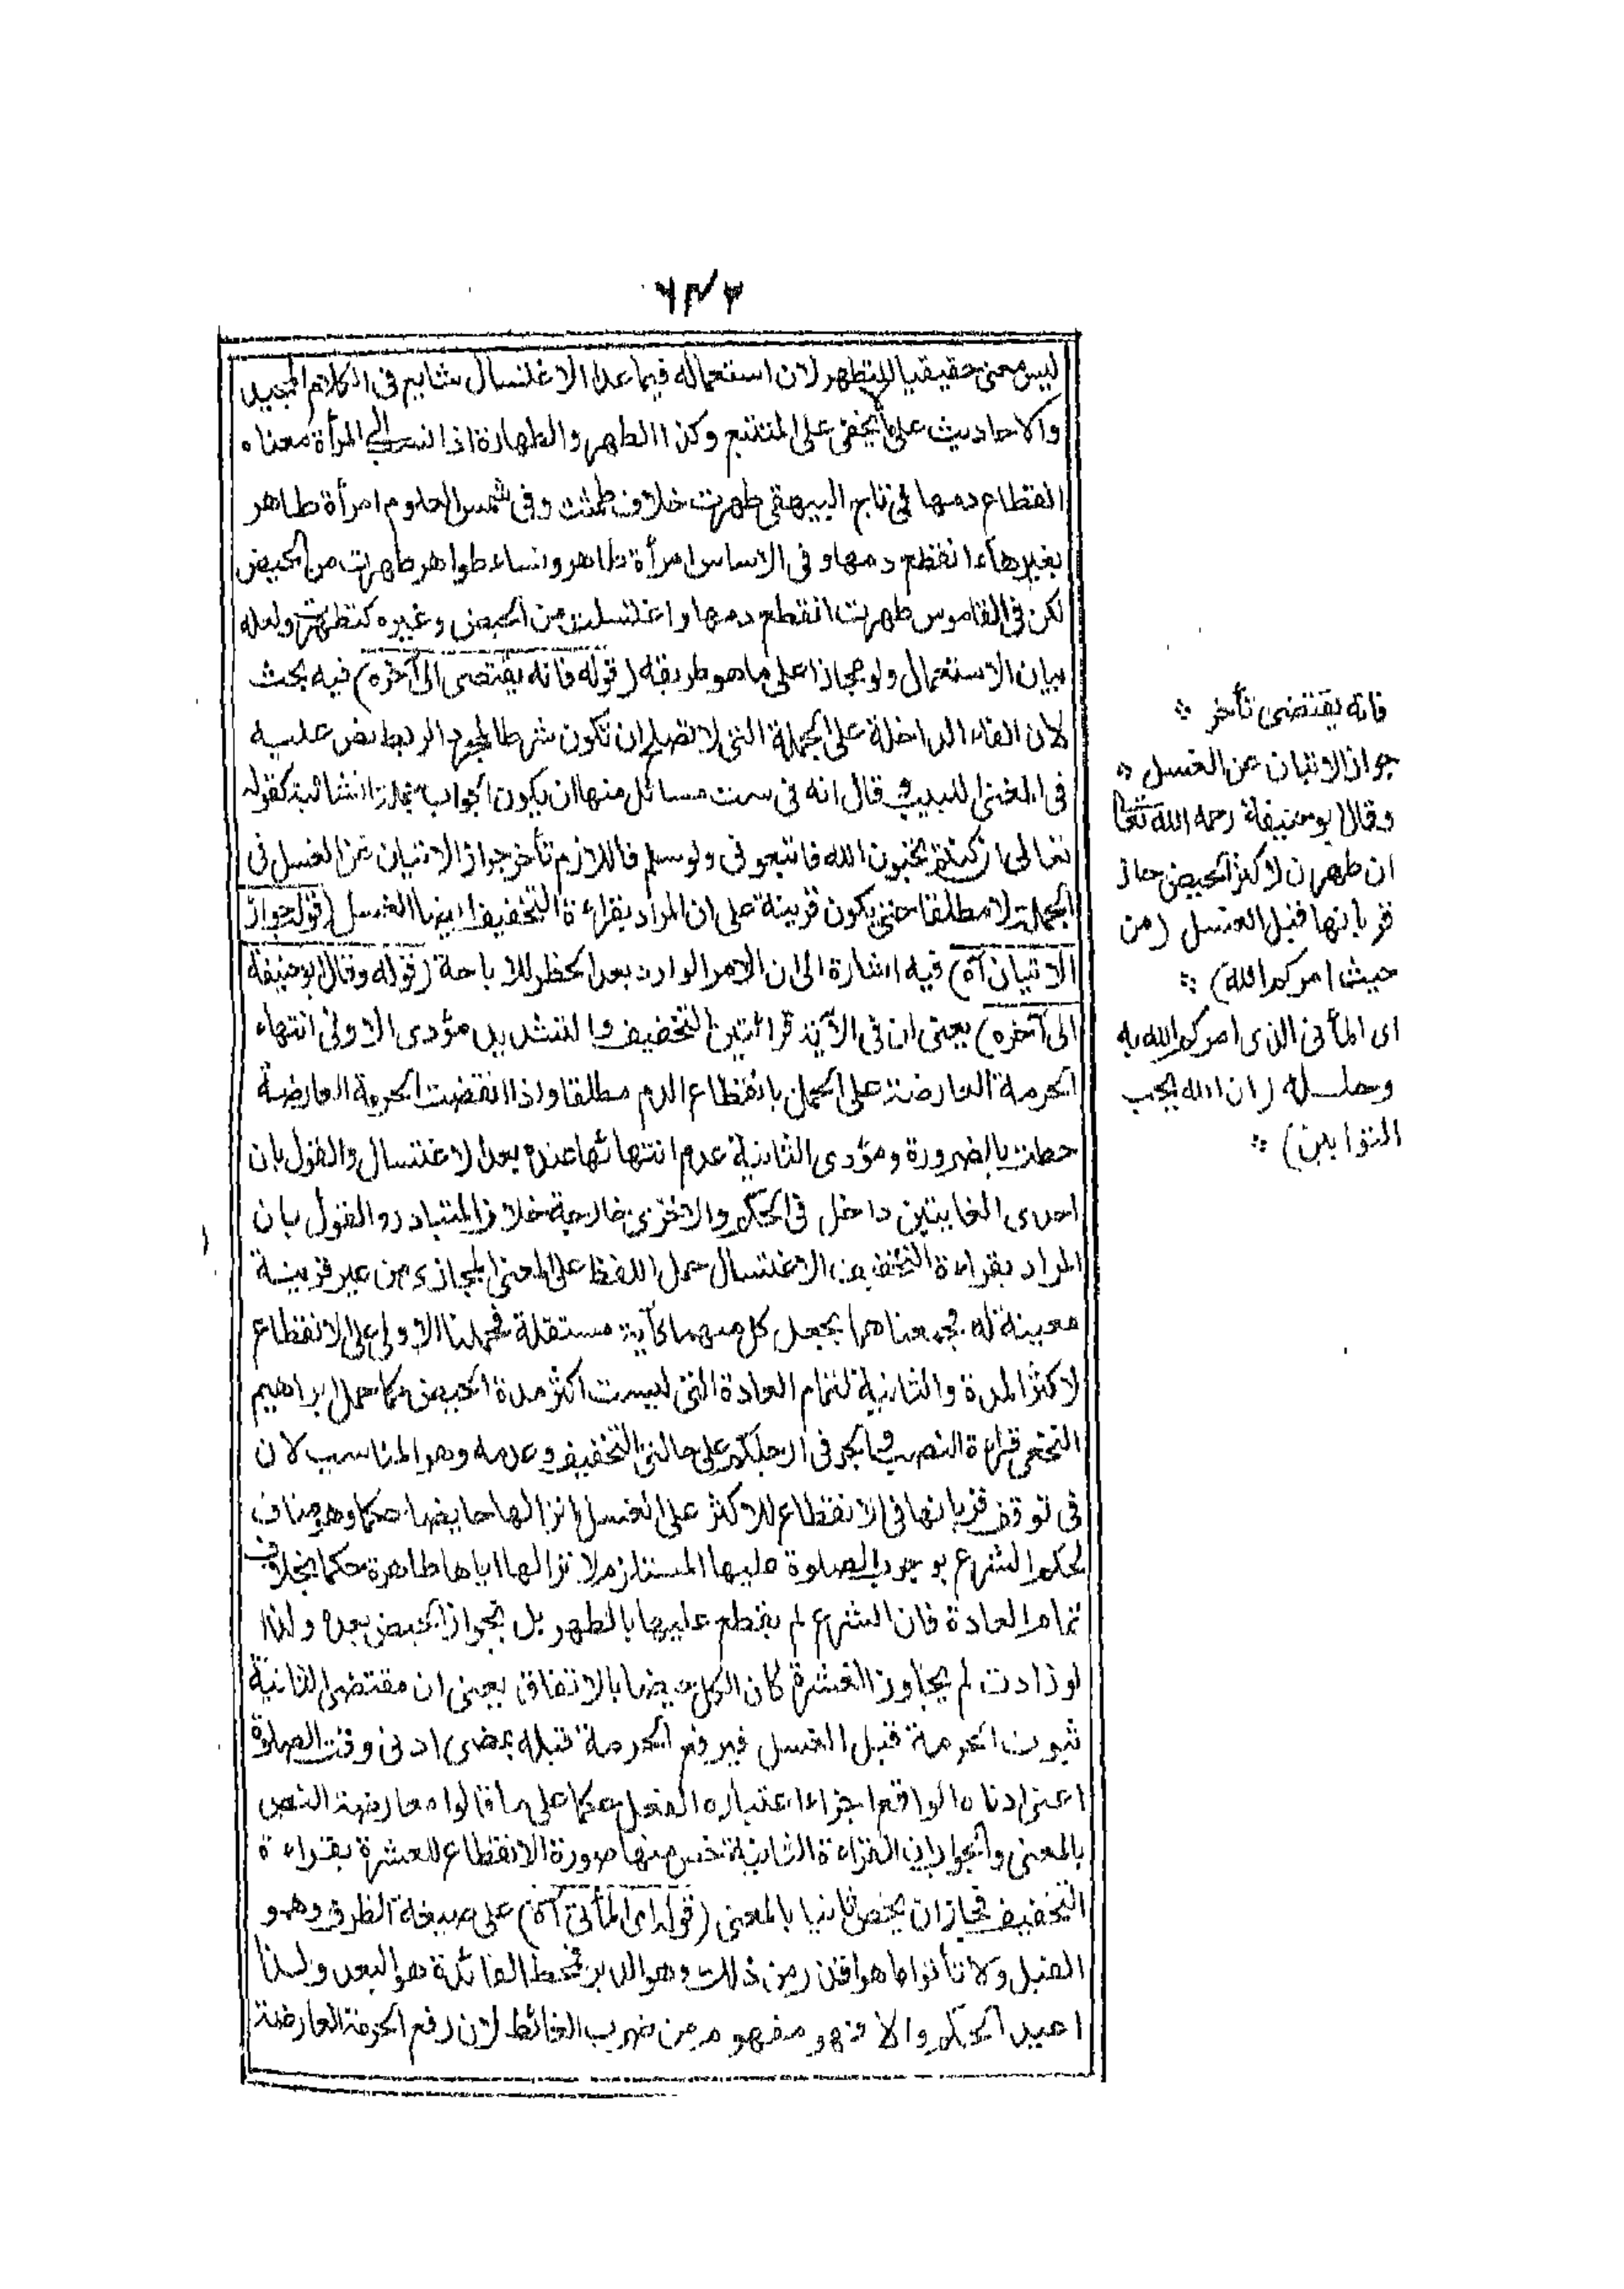 ٦٣٢
ليس معنى حقيقيا للتطهر لان استعماله فيما عدا الاغتسال شايع فى الكلام المجيد
والاحاديث على ما يخفى على المتتبع وكذا الطهر والطهارة اذا نسب الى المرأة معناه
انقطاع دمها فى تاج البيهقى طهرت خلاف طمثت وفى شمس العلوم امرأة طاهر
بغير هاء انقطع دمها وفى الاساس امرأة طاهر ونساء طواهر طهرت من الحيض
لكن فى القاموس طهرت انقطع دمها واغتسلت من الحيض وغيره كتطهرت ولعله
بيان الاستعمال ولو مجازا على ما هو طريقه (قوله فانه يقتضى الى آخره) فيه بحث
لان الفاء الداخلة على الجملة التى لا تصلح ان تكون شرطا لمجرد الربط نص عليه
فى المغنى اللبيب وقال انه فى ست مسائل منها ان يكون الجواب جملة انشائية كقوله
تعالى ان كنتم تحبون الله فاتبعونى ولو سلم فاللازم تأخر جواز الاتيان عن الغسل فى
الجملة لا مطلقا حتى يكون قرينة على ان المراد بقراءة التخفيف ايضا الغسل (قوله جواز
الاتيان آه) فيه اشارة الى ان الامر الوارد بعد الحظر للاباحة (قوله وقال ابو حنيفة
الى آخره) يعنى ان فى الآية قرائتين التخفيف والتشديد مؤدى الاولى انتهاء
الحرمة العارضة على الحمل بانقطاع الدم مطلقا واذا انقضت الحرمة العارضة
حلت بالضرورة ومؤدى الثانية عدم انتهائها عنده بعد الاغتسال والقول بان
احدى الغايتين داخل فى الحكم والاخرى خارجة خلاف المتبادر والقول بان
المراد بقراءة التخفيف الاغتسال حمل اللفظ على المعنى المجازى من غير قرينة
معينة له فجمعناهما بجعل كل منهما كآية مستقلة فحملنا الاولى على الانقطاع
لاكثر المدة والثانية لتمام العادة التى ليست اكثر مدة الحيض كما حمل ابراهيم
النخعى قراءة النصب والجر فى ارجلكم على حالتى التخفيف وعدمه وهو المناسب لان
فى توقف قربانها فى الانقطاع للاكثر على الغسل انزالها حايضا حكما وهو مناف
لحكم الشرع بوجوب الصلوة عليها المستلزم لانزالها اياها طاهرة حكما بخلاف
تمام العادة فان الشرع لم يقطع عليها بالطهر بل بجواز الحيض بعده ولذا
لو زادت لم يجاوز العشرة كان الكل حيضا بالاتفاق بعنى ان مقتضى الثانية
ثبوت الحرمة قبل الغسل فيرفع الحرمة قبله بمضى ادنى وقت الصلوة
اعنى ادناه الواقع اجزاء اعتباره الفعل حكما على ما قالوا معارضة النص
بالمعنى والجواب ان القراءة الثانية خص منها صورة الانقطاع للعشرة بقراءة
التخفيف فجاز ان يخص ثانيا بالمعنى (قوله اى المأتى آه) على صيغة الظرف وهو
القبل ولا تأتوا ما هو اقذر من ذلك وهو الدبر فمحط الفائدة هو البعد ولذا
اعيد الحكم والا فهو مفهوم من ضرب الغائط لان رفع الحرمة العارضة
فانه يقتضى تأخر
جواز الاتيان عن الغسل
وقال ابو حنيفة رحمه الله تعا
ان طهرن لاكثر الحيض جاز
قربانها قبل الغسل (من
حيث امركم الله)
اى المأتى الذى امركم الله به
وحلله (ان الله يحب
التوابين)